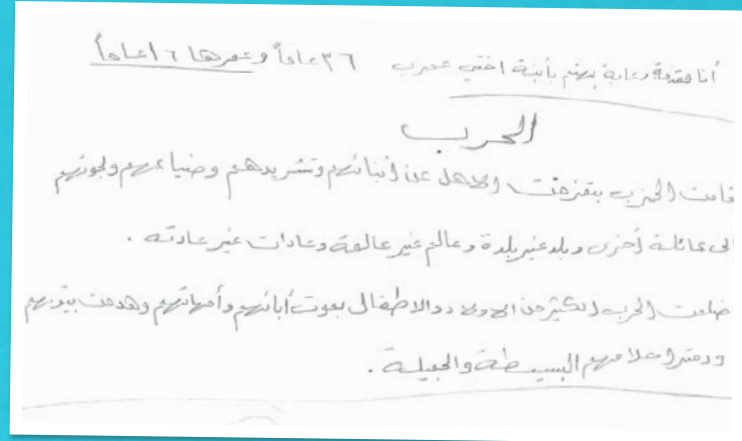 أنا مقدمة رعاية بهتم بأبنة اختي عمري ٣٦ عاماً وعمرها ١٦ عاماً
الحرب
قامت الحرب بتفرقت الاهل عن أبنائهم وتشريدهم وضياعهم ولجوئهم
إلى عائلة أخرى وبلد غير بلدة وعالم غير عالمة وعادات غير عادته .
ظلمت الحرب الكثير من الاولاد والاطفال بموت أبائهم وأمهاتهم وهدمت بيوتهم
ودمر احلامهم البسيطة والجميلة .